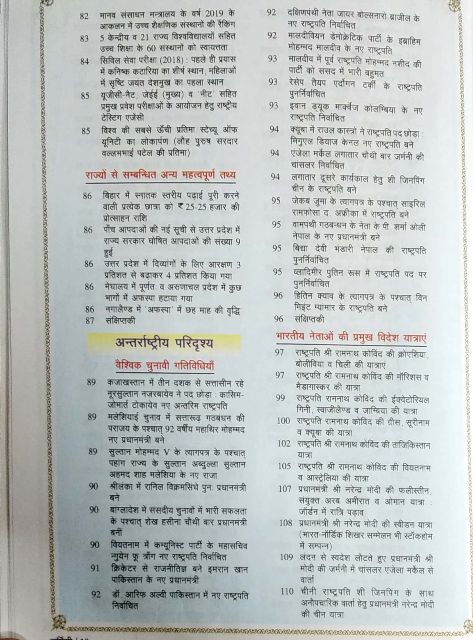 82 मानव संसाधन मन्त्रालय के वर्ष 2019 के
आकलन में उच्च शैक्षणिक संस्थानों की रैंकिंग
83 5 केन्द्रीय व 21 राज्य विश्वविद्यालयों सहित
उच्च शिक्षा के 60 संस्थानों को स्वायत्तता
84 सिविल सेवा परीक्षा (2018) : पहले ही प्रयास
में कनिष्क कटारिया का शीर्ष स्थान, महिलाओं
में सृष्टि जयंत देशमुख का पहला स्थान
85 यूजीसी-नैट; जेईई (मुख्य) व 'नीट' सहित
प्रमुख प्रवेश परीक्षाओं के आयोजन हेतु राष्ट्रीय
टेस्टिंग एजेंसी
85 विश्व की सबसे ऊँची प्रतिमा स्टेच्यू ऑफ
यूनिटी का लोकार्पण (लौह पुरुष सरदार
वल्लभभाई पटेल की प्रतिमा)
राज्यों से सम्बन्धित अन्य महत्वपूर्ण तथ्य
86 बिहार में स्नातक स्तरीय पढ़ाई पूरी करने
वाली प्रत्येक छात्रा को ₹ 25-25 हजार की
प्रोत्साहन राशि
86 पाँच आपदाओं की नई सूची से उत्तर प्रदेश में
राज्य सरकार घोषित आपदाओं की संख्या 9
हुई
86 उत्तर प्रदेश में दिव्यांगों के लिए आरक्षण 3
प्रतिशत से बढ़ाकर 4 प्रतिशत किया गया
86 मेघालय में पूर्णतः व अरुणाचल प्रदेश में कुछ
भागों में अफस्पा हटाया गया
86 नगालैण्ड में 'अफस्पा' में छह माह की वृद्धि
87 संक्षिप्तकी
अन्तर्राष्ट्रीय परिदृश्य
वैश्विक चुनावी गतिविधियाँ
89 कजाखस्तान में तीन दशक से सत्तासीन रहे
नूरसुल्तान नजरबायेव ने पद छोड़ा : कासिम-
जोमार्त टोकायेव नए अन्तरिम राष्ट्रपति
89 मलेशियाई चुनाव में सत्तारूढ़ गठबन्धन की
पराजय के पश्चात् 92 वर्षीय महाथिर मोहम्मद
नए प्रधानमंत्री बने
89 सुल्तान मोहम्मद V के त्यागपत्र के पश्चात्
पहांग राज्य के सुल्तान अब्दुल्ला सुल्तान
अहमद शाह मलेशिया के नए राजा
90 श्रीलंका में रानिल विक्रमसिंघे पुनः प्रधानमंत्री
बने
90 बांग्लादेश में संसदीय चुनावों में भारी सफलता
के पश्चात् शेख हसीना चौथी बार प्रधानमंत्री
बनीं
90 वियतनाम में कम्यूनिस्ट पार्टी के महासचिव
न्गुयेन फू त्रोंग नए राष्ट्रपति निर्वाचित
91 क्रिकेटर से राजनीतिज्ञ बने इमरान खान
पाकिस्तान के नए प्रधानमंत्री
92 डॉ. आरिफ अल्वी पाकिस्तान में नए राष्ट्रपति
निर्वाचित
92 दक्षिणपंथी नेता जायर बोल्सनारो ब्राजील के
नए राष्ट्रपति निर्वाचित
92 मालदीवियन डेमोक्रेटिक पार्टी के इब्राहिम
मोहम्मद मालदीव के नए राष्ट्रपति
93 मालदीव में पूर्व राष्ट्रपति मोहम्मद नशीद की
पार्टी को संसद में भारी बहुमत
93 रेसेप तैयप एर्दोगन टर्की के राष्ट्रपति
पुनर्निर्वाचित
93 इवान ड्यूक मार्क्वेज कोलम्बिया के नए
राष्ट्रपति निर्वाचित
94 क्यूबा में राउल कास्त्रो ने राष्ट्रपति पद छोड़ा :
मिगुएल डियाज केनल नए राष्ट्रपति बने
94 एंजेला मर्केल लगातार चौथी बार जर्मनी की
चांसलर निर्वाचित
94 लगातार दूसरे कार्यकाल हेतु शी जिनपिंग
चीन के राष्ट्रपति बने
95 जेकब जुमा के त्यागपत्र के पश्चात् साइरिल
रामफोसा द. अफ्रीका में राष्ट्रपति बने
95 वामपंथी गठबन्धन के नेता के पी. शर्मा ओली
नेपाल के नए प्रधानमंत्री बने
95 बिद्या देवी भंडारी नेपाल की राष्ट्रपति
पुनर्निर्वाचित
95 व्लादिमीर पुतिन रूस में राष्ट्रपति पद पर
पुनर्निर्वाचित
96 हितिन क्याव के त्यागपत्र के पश्चात् विन
मिइंट म्यांमार के राष्ट्रपति बने
96 संक्षिप्तकी
भारतीय नेताओं की प्रमुख विदेश यात्राएं
97 राष्ट्रपति श्री रामनाथ कोविंद की क्रोएशिया,
बोलीविया व चिली की यात्राएं
97 राष्ट्रपति श्री रामनाथ कोविंद की मॉरिशस व
मैडागास्कर की यात्रा
99 राष्ट्रपति श्री रामनाथ कोविंद की इक्वेटोरियल
गिनी, स्वाजीलैण्ड व जाम्बिया की यात्रा
100 राष्ट्रपति रामनाथ कोविंद की ग्रीस, सूरीनाम
व क्यूबा की यात्रा
102 राष्ट्रपति श्री रामनाथ कोविंद की ताजिकिस्तान
यात्रा
105 राष्ट्रपति श्री रामनाथ कोविंद की वियतनाम
व आस्ट्रेलिया की यात्रा
107 प्रधानमंत्री श्री नरेन्द्र मोदी की फलीस्तीन,
संयुक्त अरब अमीरात व ओमान यात्रा :
जॉर्डन में रात्रि पड़ाव
108 प्रधानमंत्री श्री नरेन्द्र मोदी की स्वीडन यात्रा
(भारत-नॉर्डिक शिखर सम्मेलन भी स्टॉकहोम
में सम्पन्न)
109 लंदन से स्वदेश लौटते हुए प्रधानमंत्री श्री
मोदी की जर्मनी में चांसलर एंजेला मर्केल से
वार्ता
110 चीनी राष्ट्रपति शी जिनपिंग के साथ
अनौपचारिक वार्ता हेतु प्रधानमंत्री नरेन्द्र मोदी
की चीन यात्रा